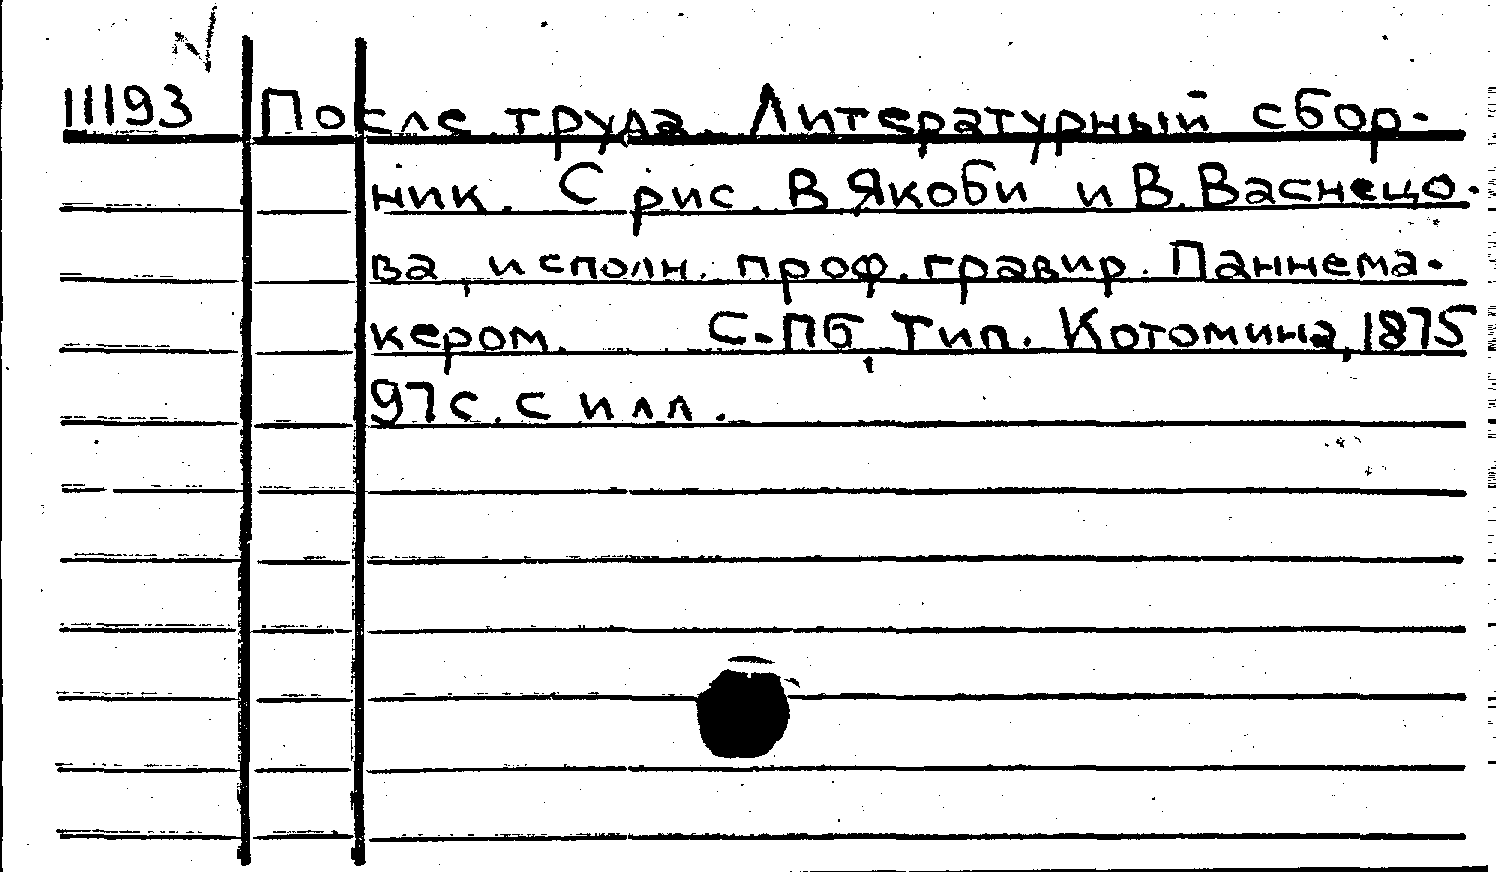 11193 После труда. Литературный сбор-
ник. С рис. В Якоби и В. Васнецо-
ва, исполн. проф. гравир. Паннема-
кером. С-Пб, Тип. Котомина, 1875
97 с. с илл.